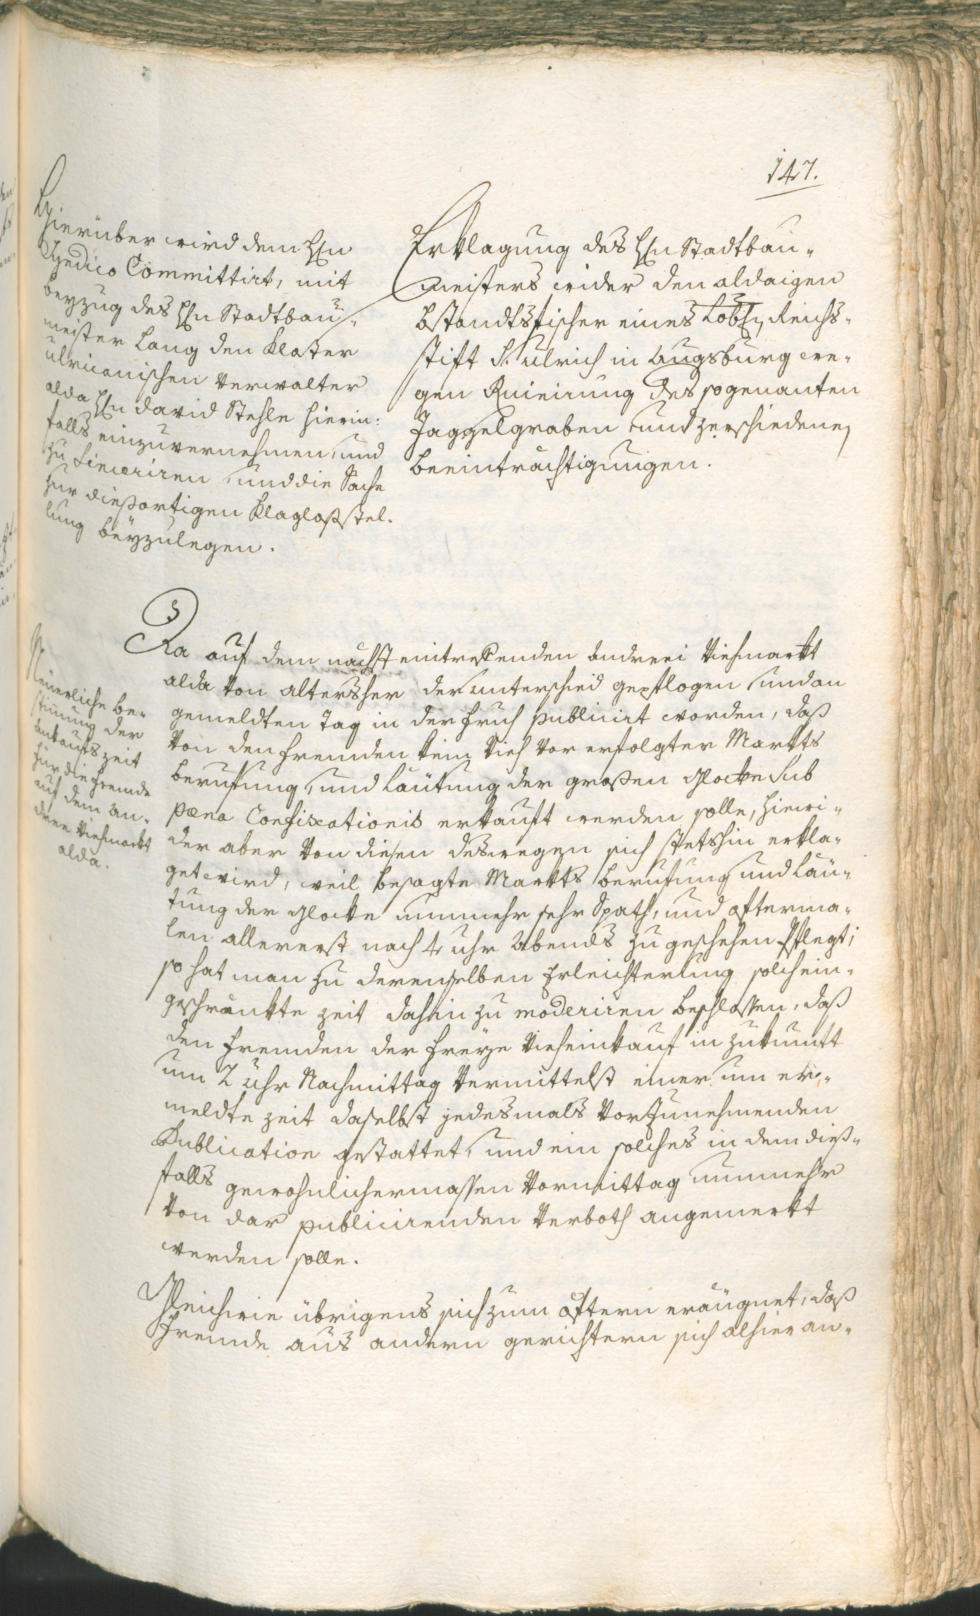 147.
Hierüber wird dem Hn
Syndico Committirt, mit
beyzug des Hn Stadtbau-
meister Lang den Kloster
ulricianischen Verwalter
alda Hn David Stehle hierin:
falls einzuvernehmen, und
zu sinceriren, und die Sache
zur dießortigen Klagloßstel-
lung beyzulegen.
Erklagung des Hn Stadtbau-
meisters wider den aldaigen
bstandtsfischer eines Löbln Reichs-
stift St. Ulrich in Augsburg we-
gen Ruinirung des sogenanten
Jaggelgraben und zerschiedene
beeinträchtigungen.
Neuerliche be-
stimung der
ankaufszeit
für die fremde
auf dem An-
dreae Viehmarkt
alda.
3
Da auf dem nächst eintreffenden Andreei Viehmarkt
alda von altersher der unterschied gepflogen und an
gemeldten Tag in der Fruh publicirt worden, daß
von den fremden kein Vieh vor erfolgter Markts
beruffung, und Läutung der großen Glocke sub
poena Confixcationis erkauft werden solle, hierwi-
der aber von diesen deswegen sich stetshin erkla-
get wird, weil besagte Markts beruffung und Läu-
tung der Glocke nunmehr sehr spath, und ofterma-
len allererst nach 4 uhr Abends zu geschehen pflegt;
so hat man zu derenselben Erleichterung solch ein-
geschränkte zeit dahin zu moderiren beschlossen, daß
den Fremden der freye Vieheinkauf in Zukunft
um 2 Uhr Nachmittag vermittelst einer um er-
meldte zeit daselbst jedesmals vorzunehmenden
Publication gestattet, und ein solches in dem dieß-
falls gewohnlichermassen Vormittag nunmehr
von dar publicirenden Verboth angemerkt
werden solle.
Gleichwie übrigens sich zum öftern eräugnet, daß
Fremde aus andern gerichtern sich alhier an-